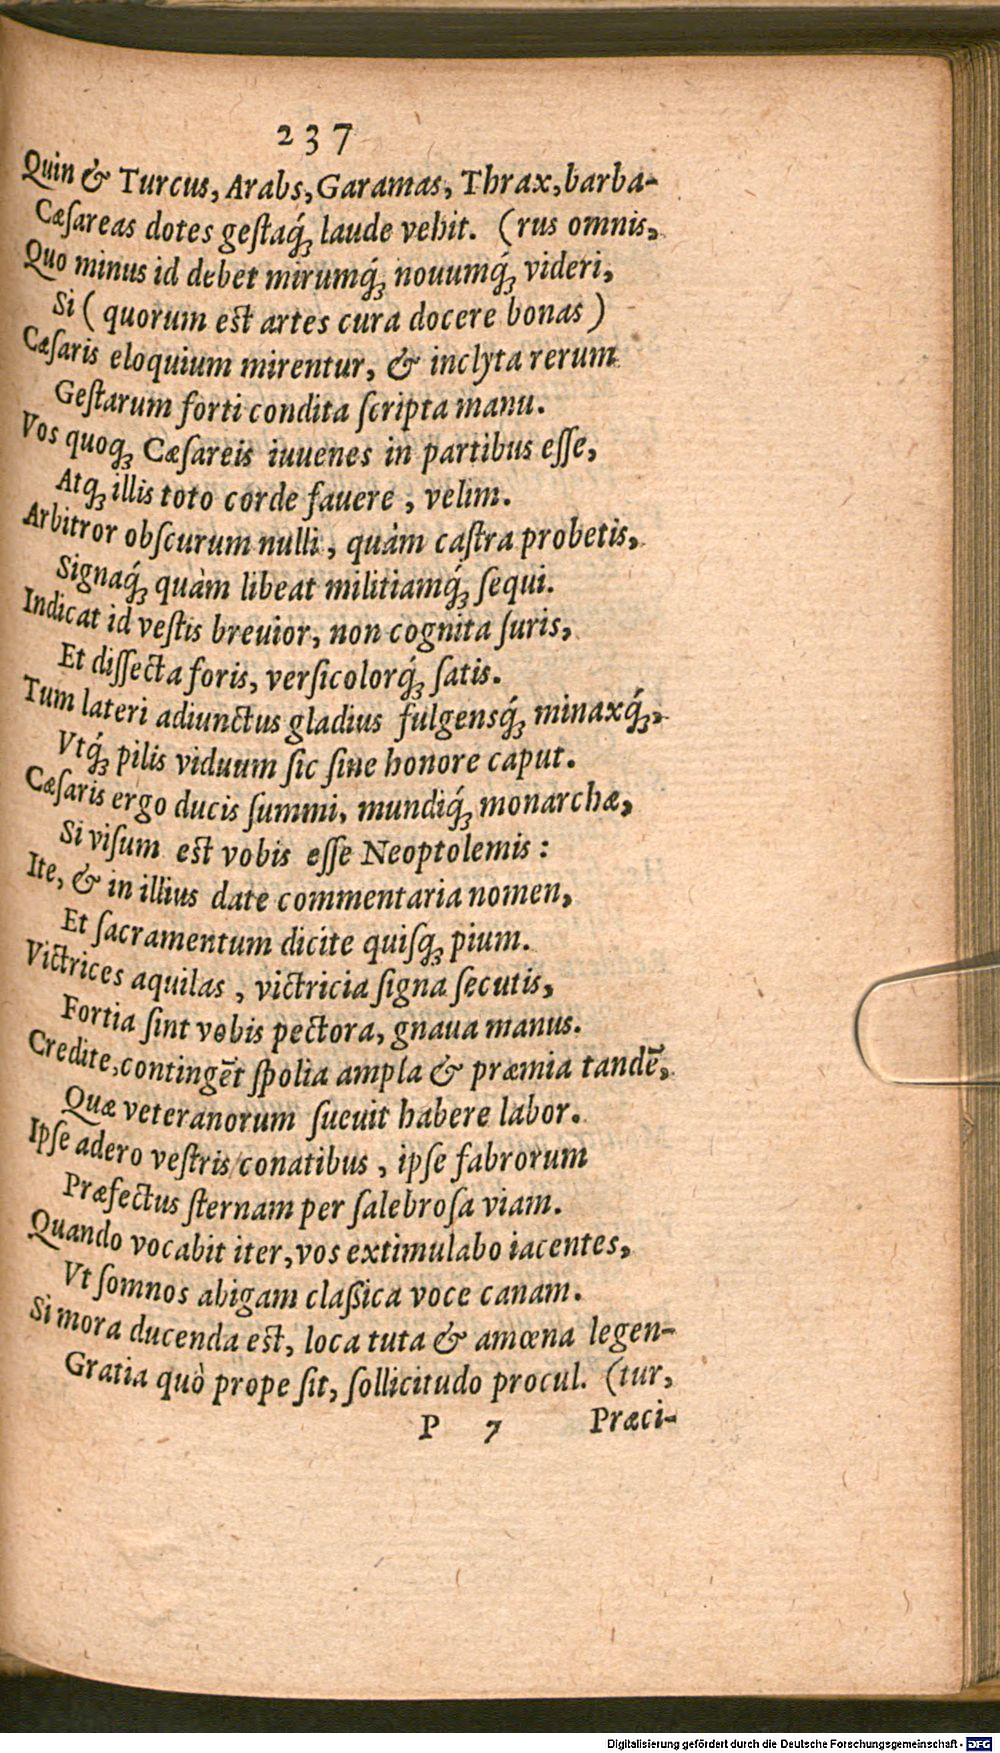 237
Quin & Turcus, Arabs, Garamas, Thrax, barba-
Cæſareas dotes geſtaq́ꝫ laude vehit. (rus omnis,
Quo minus id debet mirumq́ꝫ nouumq́ꝫ videri,
Si ( quorum est artes cura docere bonas )
Cæſaris eloquium mirentur, & inclyta rerum
Geſtarum forti condita ſcripta manu.
Vos quoqꝫ Cæſareis iuuenes in partibus eſſe,
Atqꝫ illis toto corde fauere, velim.
Arbitror obſcurum nulli, quàm caſtra probetis,
Signaq́ꝫ quàm libeat militiamq́ꝫ ſequi.
Indicat id veſtis breuior, non cognita ſuris,
Et diſſecta foris, verſicolorq́ꝫ ſatis.
Tum lateri adiunctus gladius fulgensq́ꝫ minaxq́ꝫ,
Vtq́ꝫ pilis viduum ſic ſine honore caput.
Cæſaris ergo ducis ſummi, mundiq́ꝫ monarchæ,
Si viſum est vobis eſſe Neoptolemis :
Ite, & in illius date commentaria nomen,
Et ſacramentum dicite quiſqꝫ pium.
Victrices aquilas, victricia ſigna ſecutis,
Fortia ſint vobis pectora, gnaua manus.
Credite, contingēt ſpolia ampla & præmia tandē,
Quæ veteranorum ſueuit habere labor.
Ipſe adero veſtris conatibus, ipſe fabrorum
Præfectus ſternam per ſalebroſa viam.
Quando vocabit iter, vos extimulabo iacentes,
Vt ſomnos abigam claſsica voce canam.
Si mora ducenda est, loca tuta & amœna legen-
Gratia quò prope ſit, ſollicitudo procul. (tur,
P 7 Præci-
Digitalisierung gefördert durch die Deutsche Forschungsgemeinschaft - DFG